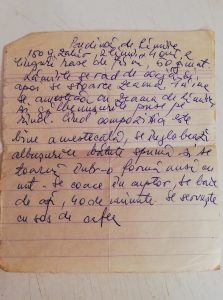 Budincă de lămâie
150 g zahăr, 2 lămâi, 4 ouă, 2
linguri rase de făină, 60 g unt
Lămâile se rad de coajă
apoi se stoarce zeama. Făina
se amestecă cu zeama de lămâie
și gălbenușurile puse pe
rând. Când compoziția este
bine amestecată, se înglobează
albușurile bătute spumă și se
toarnă într-o formă unsă cu
unt. Se coace în cuptor, pe baie
de apă, 40 de minute. Se servește
cu sos de